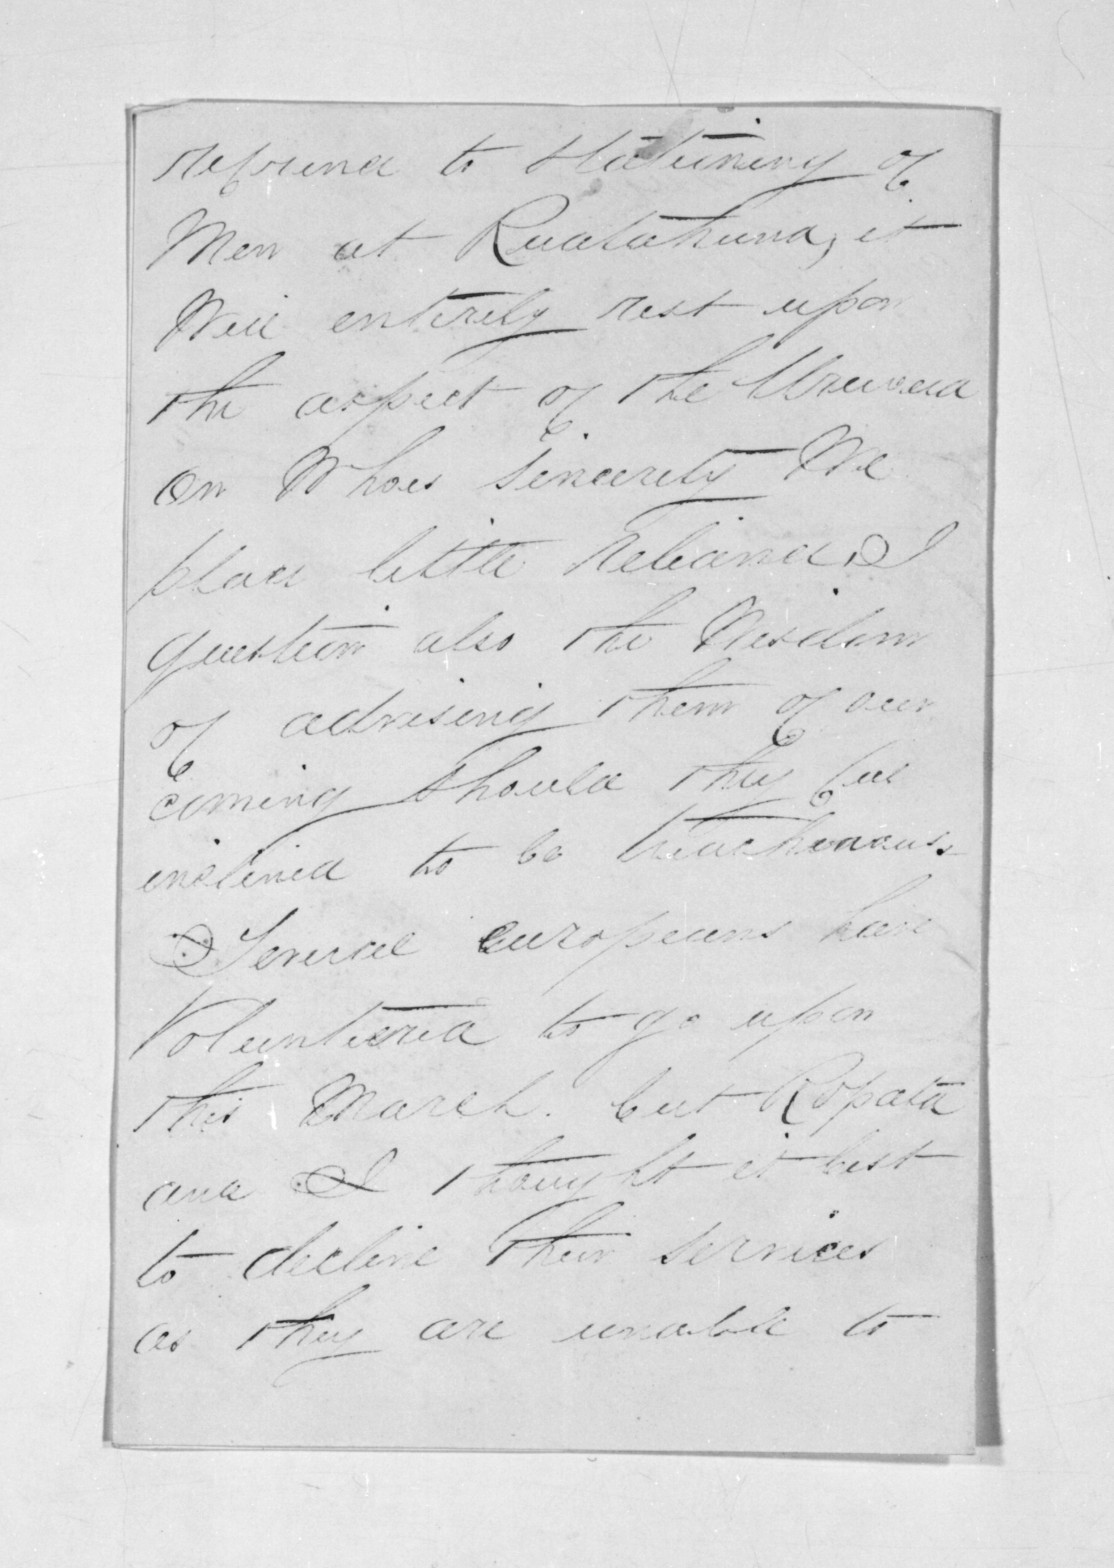 reference to Stationing of
Men at Ruatahuna, it
Will entirely rest upon
the aspect of the Urewera
on Whoes sincerity We
place little reliance, I
question also the Wisdom
of advising them of our
coming should they feel
inclined to be treacherous.
Several europeans have
Volunteered to go upon
this March. but Ropata
and I thought it best
to decline their services
as they are unable to